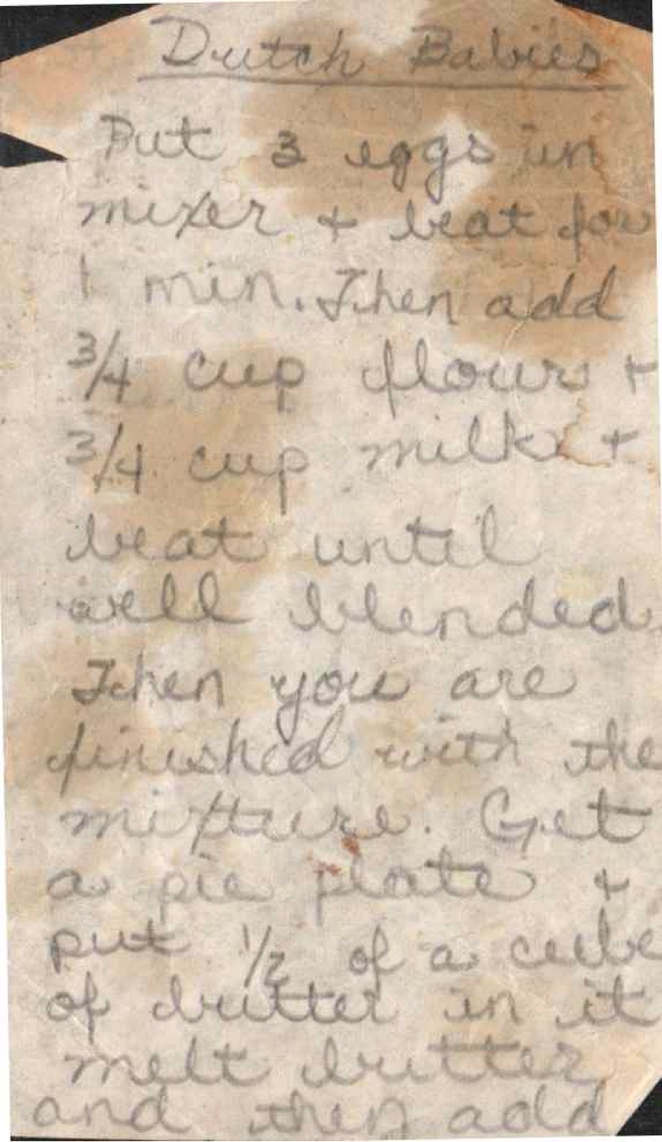 Dutch Babies
Put 3 eggs in
mixer + beat for
1 min. Then add
3/4 cup flour +
3/4 cup milk +
beat until
well blended
Then you are
finished with the
mixture. Get
a pie plate +
put 1/2 of a cube
of butter in it
melt butter
and then add